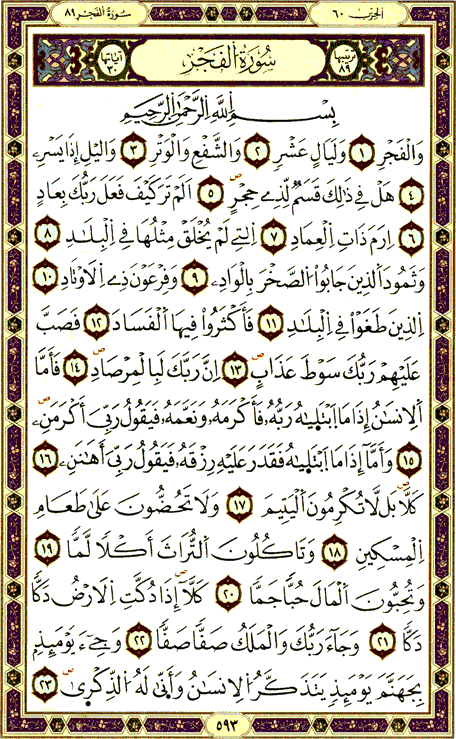 الحزب ٦٠
سورة الفجر ٨٩
ترتيبها ٨٩
سُورَةُ الْفَجْرِ
آياتها ٣٠
بِسْمِ اللَّهِ الرَّحْمَٰنِ الرَّحِيمِ
وَالْفَجْرِ ١ وَلَيَالٍ عَشْرٍ ٢ وَالشَّفْعِ وَالْوَتْرِ ٣ وَاليْلِ إِذَا يَسْرِۦ
٤ هَلْ فِي ذَٰلِكَ قَسَمٌ لِّذِي حِجْرٍ ٥ اَلَمْ تَرَ كَيْفَ فَعَلَ رَبُّكَ بِعَادٍ
٦ اِرَمَ ذَاتِ الْعِمَادِ ٧ اِلتِي لَمْ يُخْلَقْ مِثْلُهَا فِي الْبِلَٰدِ ٨
وَثَمُودَ الذِينَ جَابُوا الصَّخْرَ بِالْوَادِۦ ٩ وَفِرْعَوْنَ ذِي الَاوْتَادِ ١٠
اِلذِينَ طَغَوْا فِي الْبِلَٰدِ ١١ فَأَكْثَرُوا فِيهَا الْفَسَادَ ١٢ فَصَبَّ
عَلَيْهِمْ رَبُّكَ سَوْطَ عَذَابٍ ١٣ اِنَّ رَبَّكَ لَبِالْمِرْصَادِ ١٤ فَأَمَّا
الِانسَٰنُ إِذَا مَا اَبْتَلِيٰهُ رَبُّهُۥ فَأَكْرَمَهُۥ وَنَعَّمَهُۥ فَيَقُولُ رَبِّيَ أَكْرَمَنِۦ
١٥ وَأَمَّا إِذَا مَا اَبْتَلِيٰهُ فَقَدَرَ عَلَيْهِ رِزْقَهُۥ فَيَقُولُ رَبِّيَ أَهَٰنَنِۦ ١٦
كَلَّا بَل لَّا تُكْرِمُونَ اَلْيَتِيمَ ١٧ وَلَا تَحُضُّونَ عَلَىٰ طَعَامِ
اِلْمِسْكِينِ ١٨ وَتَاكُلُونَ اَلتُّرَاثَ أَكْلًا لَّمًّا ١٩
وَتُحِبُّونَ اَلْمَالَ حُبًّا جَمًّا ٢٠ كَلَّا إِذَا دُكَّتِ اِلَارْضُ دَكًّا
دَكًّا ٢١ وَجَآءَ رَبُّكَ وَالْمَلَكُ صَفًّا صَفًّا ٢٢ وَجِيءَ يَوْمَئِذٍۢ
بِجَهَنَّمَ يَوْمَئِذٍ يَتَذَكَّرُ الِانسَٰنُ وَأَنَّىٰ لَهُ الذِّكْرِىٰ ٢٣
٥٩٣